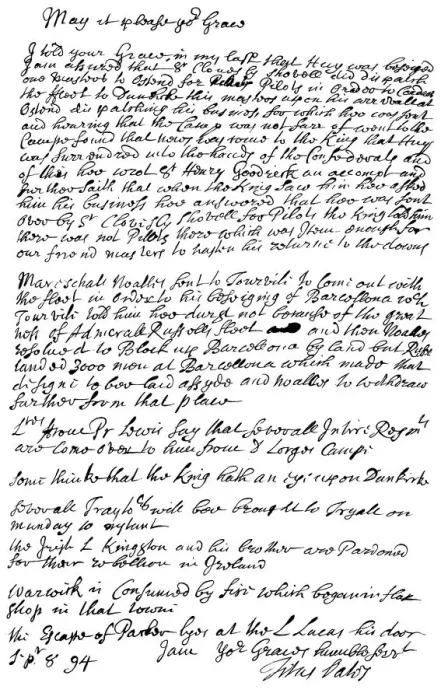 May it please yor Grace
I told your Grace in my last that Huy was besieged
I am assured that Sr Clovesly Shovell did dispatch
one Mr to Ostend for Pilots in order to
the fleet to Dunkirk this master upon his arrivall at
Ostend dispatching his business for which hee was sent
and hearing that the Camp was not farr of went to the
Campe found that news was come to the King that Huy
was surrendred into the hands of the Confederats and
of this hee wrot Sr Henry Goodrick an accompt and
further saith that when the King saw him hee asked
him his business hee answered that hee was sent
over by Sr Clovisly Shovell for Pilots the King told him
there was not Pilots there which was them enough for
our friend masters to hasten his returne to the downs
Mareschall Noallis sent to Tourvill to Come out with
the fleet in order to his besieging of Barcellona wch
Tourvill told him hee durst not because of the great
ness of Admerall Russells fleet and then Noalles
resolved to Block up Barcelona by land but
landed 3000 men at Barcellona which made that
disigne to bee laid assyde and noallis to withdraw
further from that place
Ltres from Pr Lewis say that severall Intire Regmts
are come over to him from D Lorges Campe
some thinke that the King hath an eye upon Dunkirke
severall Traytors will bee brought to Tryall on
munday to
the Irish L Kingston and his brother are Pardoned
for their rebellion in Ireland
Warwick is Consumed by fire which began in flax
shop in that towne
the Escape of Parker lyes at the L Lucas his door
Sepr 8 94 I am Yor Graces humble servt
Titus Oates